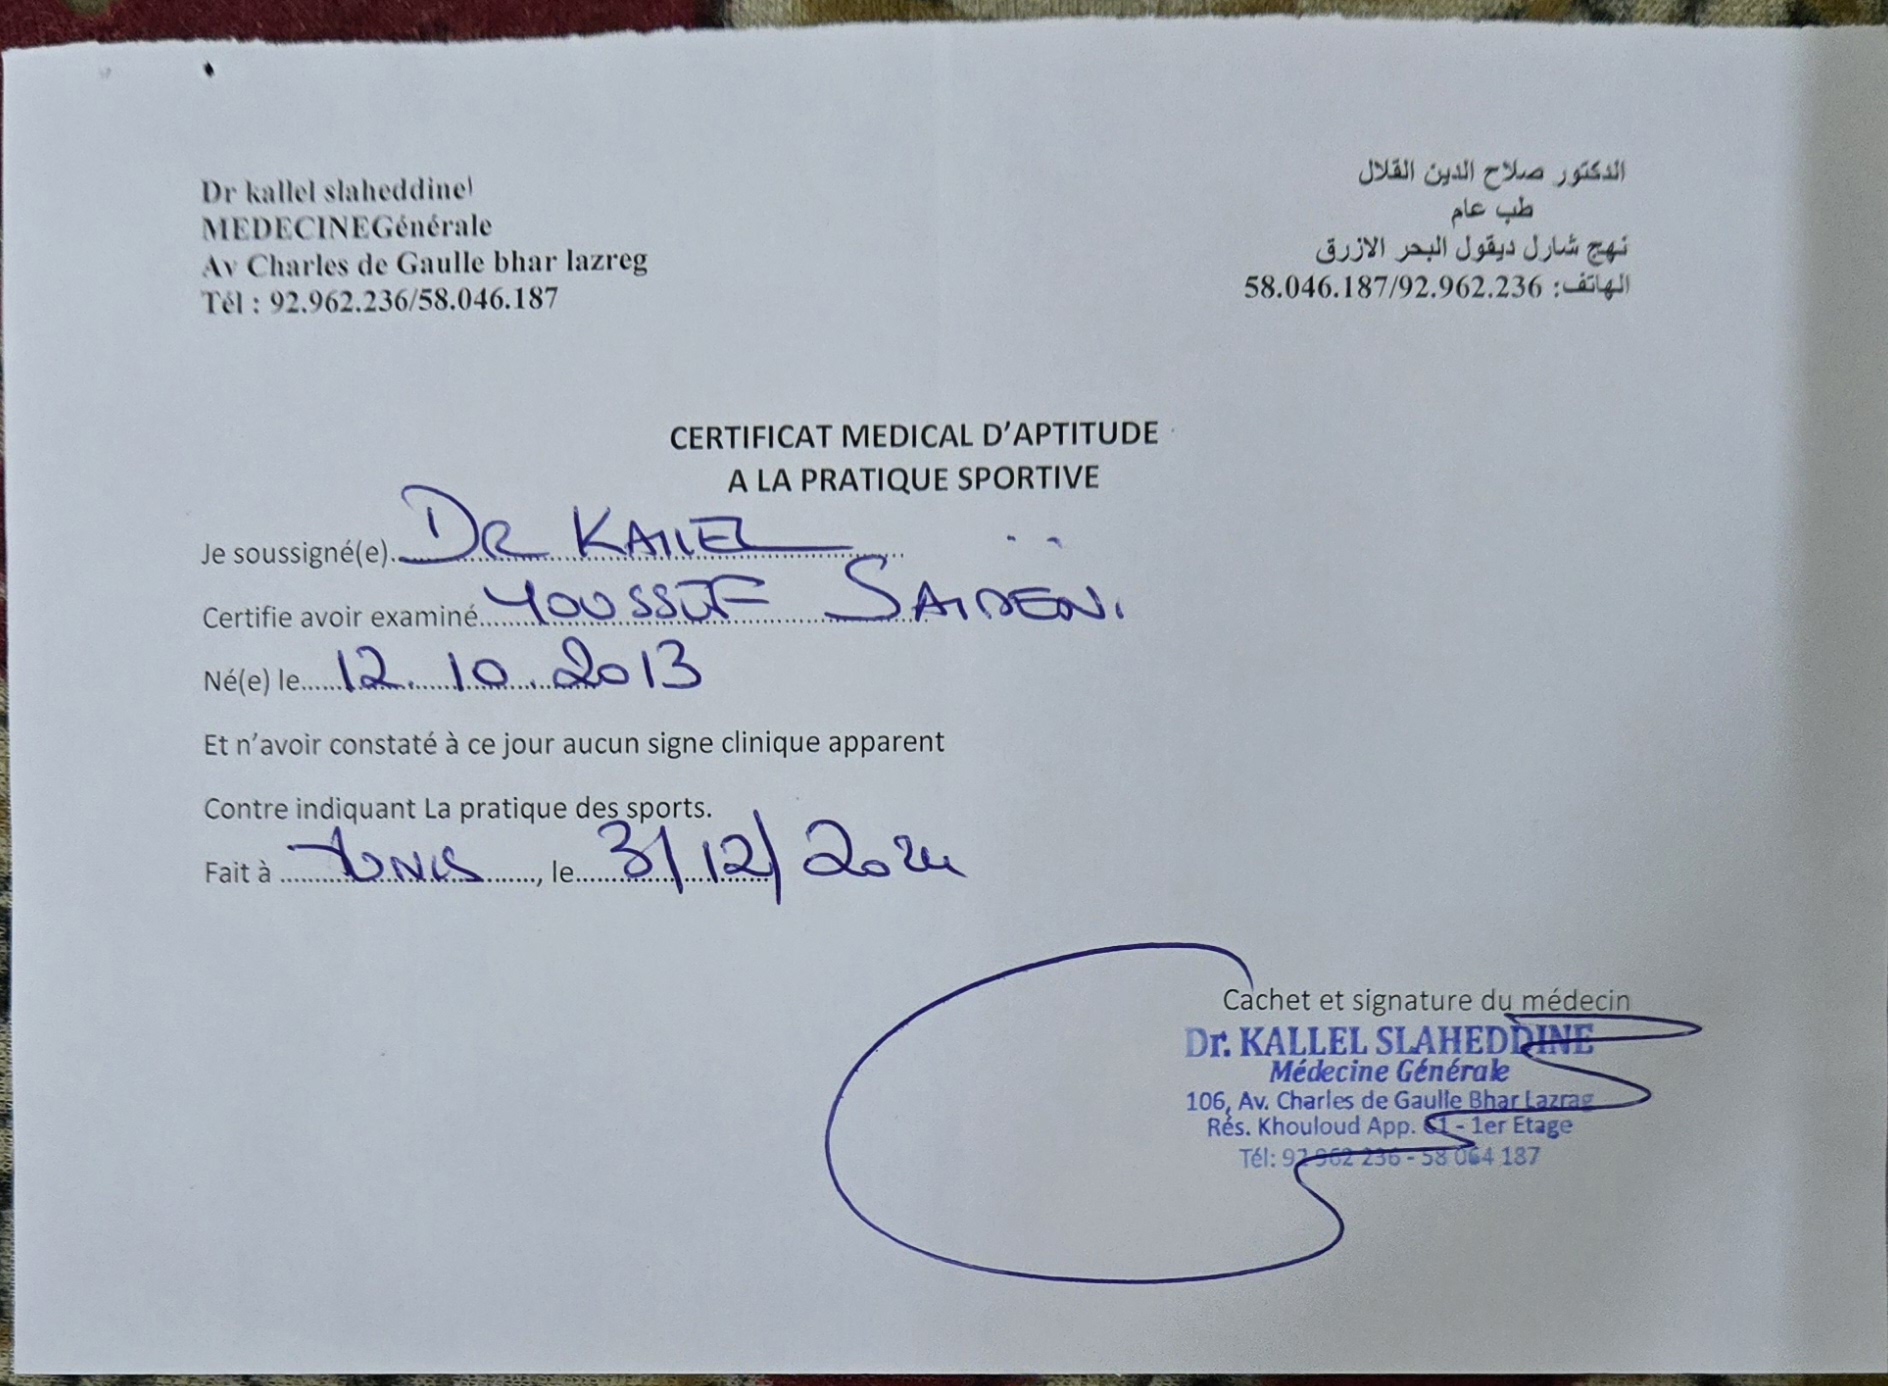 Dr kallel slaheddine
MEDECINEGénérale
Av Charles de Gaulle bhar lazreg
Tél : 92.962.236/58.046.187
الدكتور صلاح الدين القلال
طب عام
نهج شارل ديقول البحر الازرق
الهاتف: 58.046.187/92.962.236
CERTIFICAT MEDICAL D'APTITUDE
A LA PRATIQUE SPORTIVE
Je soussigné(e). DR KALLEL
Certifie avoir examiné YOUSSEF
Né(e) le 12.10.2013
Et n'avoir constaté à ce jour aucun signe clinique apparent
Contre indiquant La pratique des sports.
Fait à tunis, le 31/12/2024
Cachet et signature du médecin
Dr. KALLEL SLAHEDDINE
Médecine Générale
106, Av. Charles de Gaulle Bhar Lazrag
Rés. Khouloud App. 61 - 1er Etage
Tél: 92 962 236 - 58 064 187